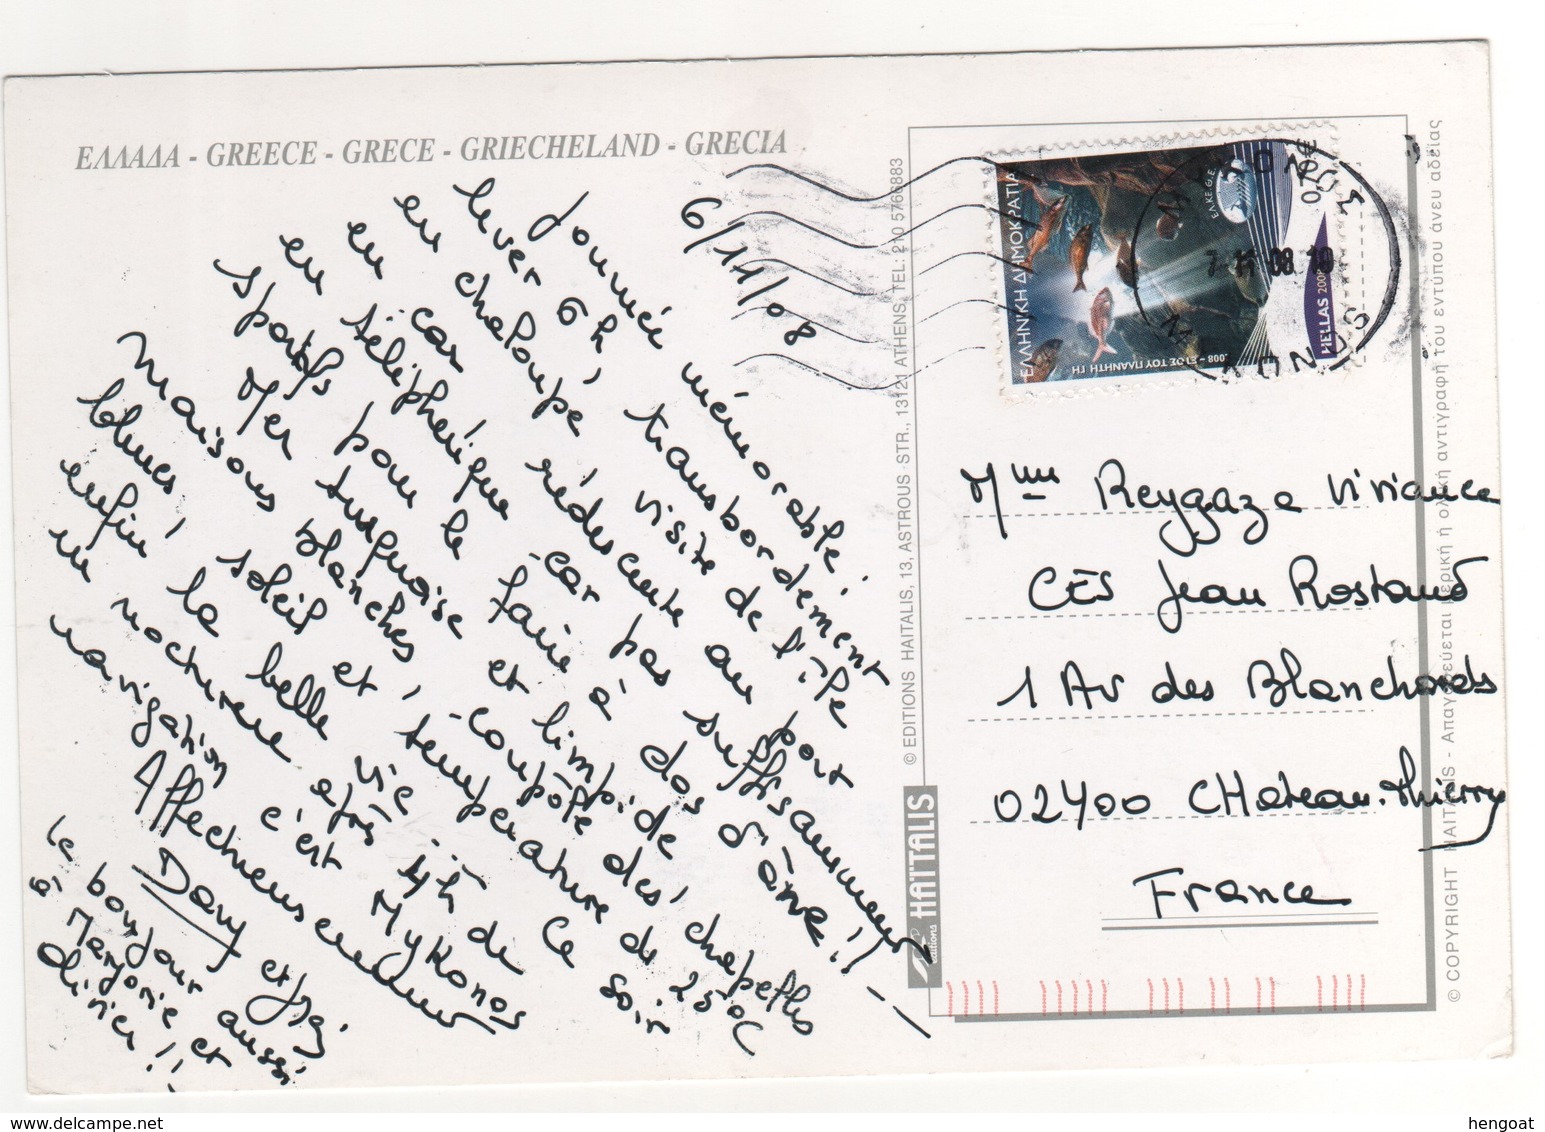 ΕΛΛΑΔΑ - GREECE - GRECE - GRIECHELAND - GRECIA
6/11/08
Journée mémorable.
lever 6h, transbordement
en chaloupe visite de l'île
en car, redescente au port
en téléphérique car pas suffisamment
sportifs pour le faire à dos d'âne !!
Mer turquoise et limpide
maisons blanches, coupole des chapelles
bleues, soleil et température de 25°C
enfin la belle vie ... Ce soir
en nocturne après 4h de
navigation c'est Mykonos
Affectueusement
Dany et
le bonjour aussi
à Marjorie et
Olivier !!
© EDITIONS HAITALIS, 13, ASTROUS STR., 13121 ATHENS, TEL: 210 5766883
editions HAITALIS
ΕΛΛΗΝΙΚΗ ΔΗΜΟΚΡΑΤΙΑ
008 - ΕΤΟΣ ΤΟΥ ΠΛΑΝΗΤΗ ΓΗ
ΕΛ.ΚΕ.Θ.Ε.
0,70€
HELLAS 2008
7-11-08.10
Mme Reygaza Viviance
CES Jean Rostand
1 Av des Blanchards
02400 CHateau-Thierry
France
© COPYRIGHT HAITALIS - Απαγορεύεται μερική ή ολική αντιγραφή του εντύπου άνευ αδείας
www.delcampe.net
hengoat